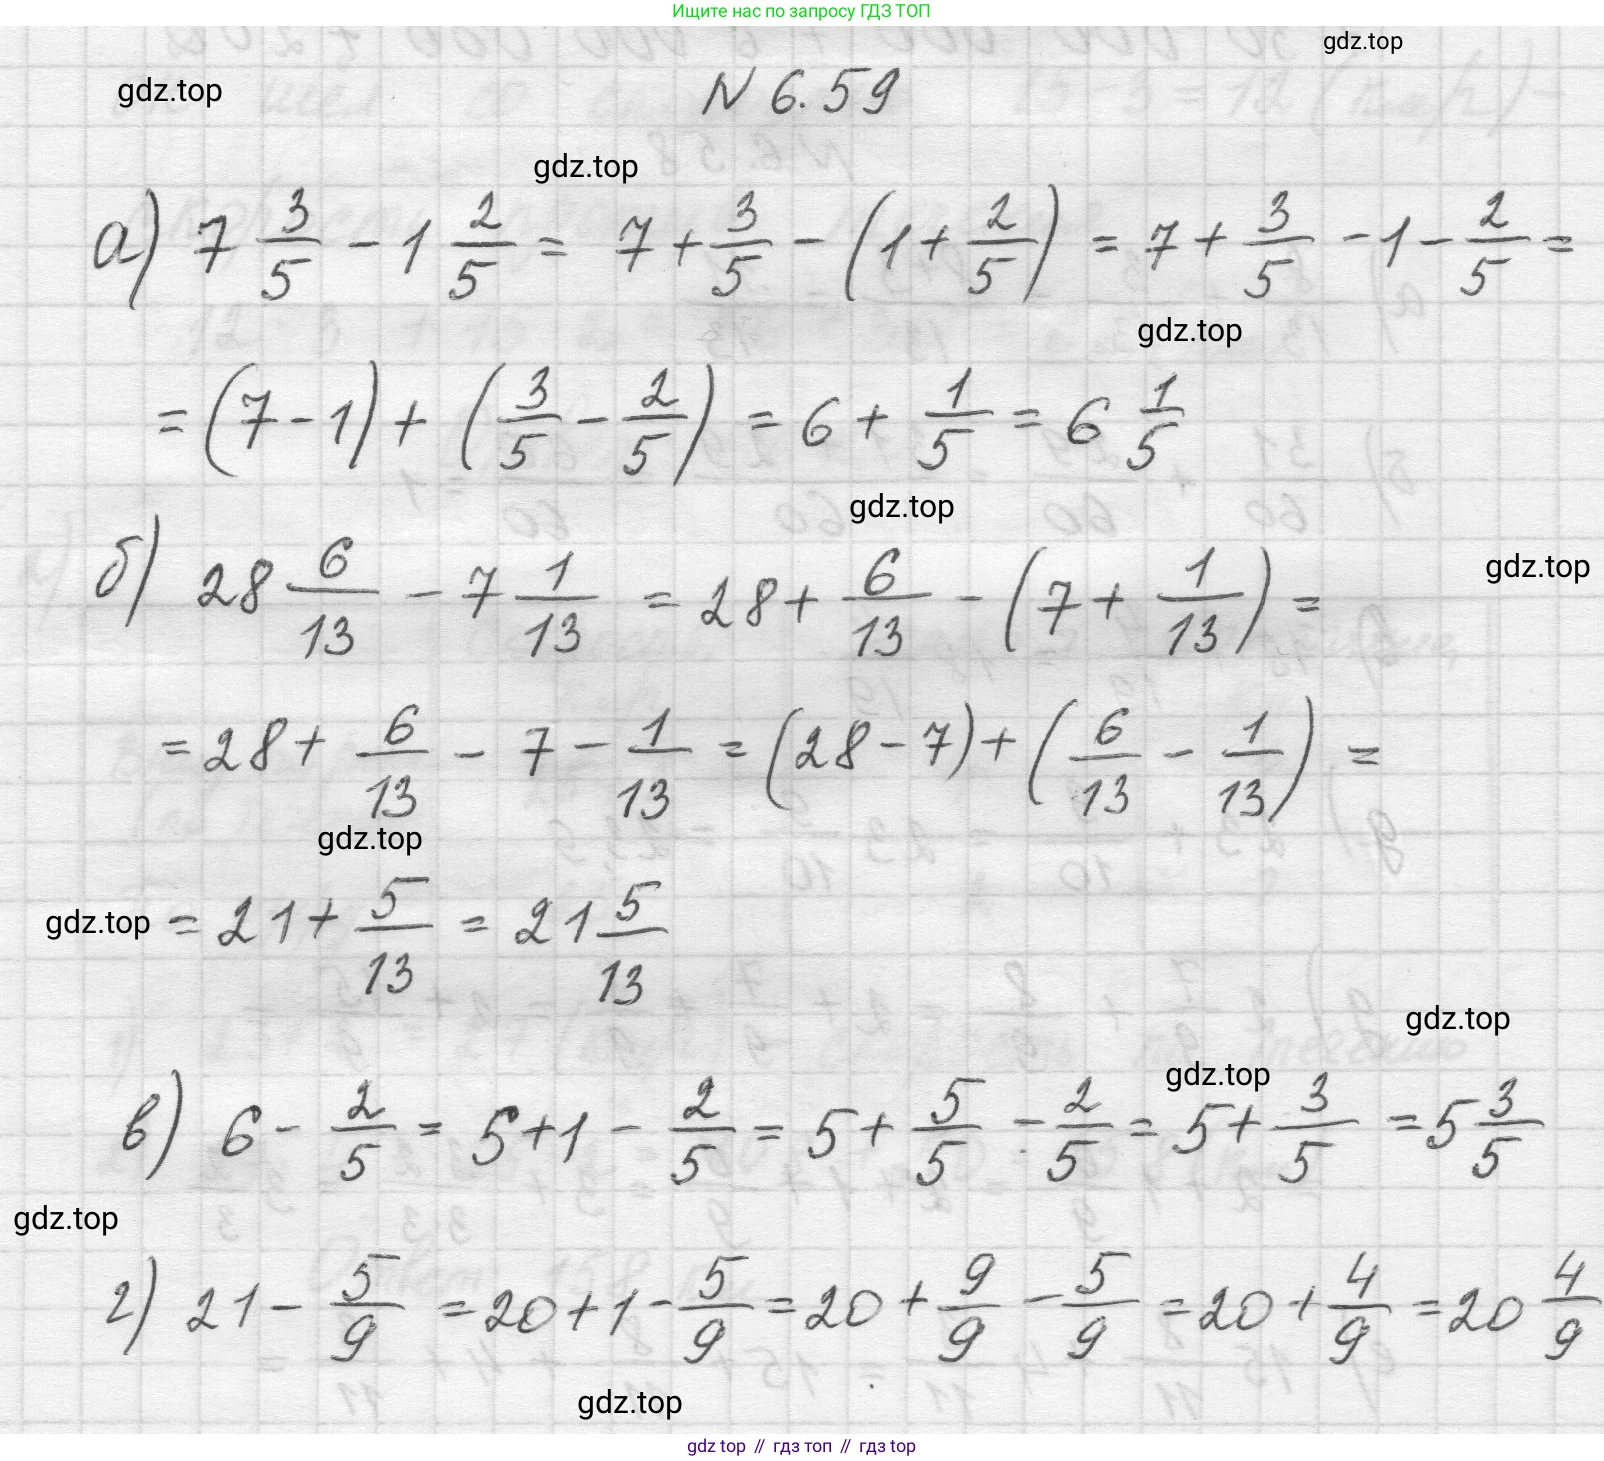 Ищите нас по запросу ГДЗ ТОП
gdz.top
gdz.top
N 6.59
gdz.top
а) 7 3/5 - 1 2/5 = 7 + 3/5 - (1 + 2/5) = 7 + 3/5 - 1 - 2/5 =
gdz.top
= (7 - 1) + (3/5 - 2/5) = 6 + 1/5 = 6 1/5
gdz.top
gdz.top
б) 28 6/13 - 7 1/13 = 28 + 6/13 - (7 + 1/13) =
= 28 + 6/13 - 7 - 1/13 = (28 - 7) + (6/13 - 1/13) =
gdz.top
gdz.top
= 21 + 5/13 = 21 5/13
gdz.top
gdz.top
в) 6 - 2/5 = 5 + 1 - 2/5 = 5 + 5/5 - 2/5 = 5 + 3/5 = 5 3/5
gdz.top
г) 21 - 5/9 = 20 + 1 - 5/9 = 20 + 9/9 - 5/9 = 20 + 4/9 = 20 4/9
gdz.top
gdz top // гдз топ // gdz top